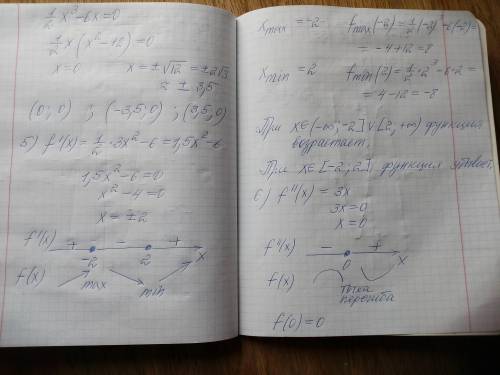 1/2 x³ - 6x = 0
1/2 x (x² - 12) = 0
x = 0 x = ±√12 = ±2√3
≈ ± 3,5
(0; 0) ; (-3,5; 0) ; (3,5; 0)
5) f'(x) = 1/2 · 3x² - 6 = 1,5x² - 6
1,5x² - 6 = 0
x² - 4 = 0
x = ±2
f'(x) + - +
-2 2 x
f(x) max min
x max = -2 f max (-2) = 1/2 (-2)³ - 6(-2) =
= -4 + 12 = 8
x min = 2 f min (2) = 1/2 · 2³ - 6 · 2 =
= 4 - 12 = -8
При x ∈ (-∞; -2] ∪ [2; +∞) функция
возрастает,
При x ∈ [-2; 2] функция убывает.
6) f''(x) = 3x
3x = 0
x = 0
f''(x) - +
0 x
f(x) точка
перегиба
f(0) = 0